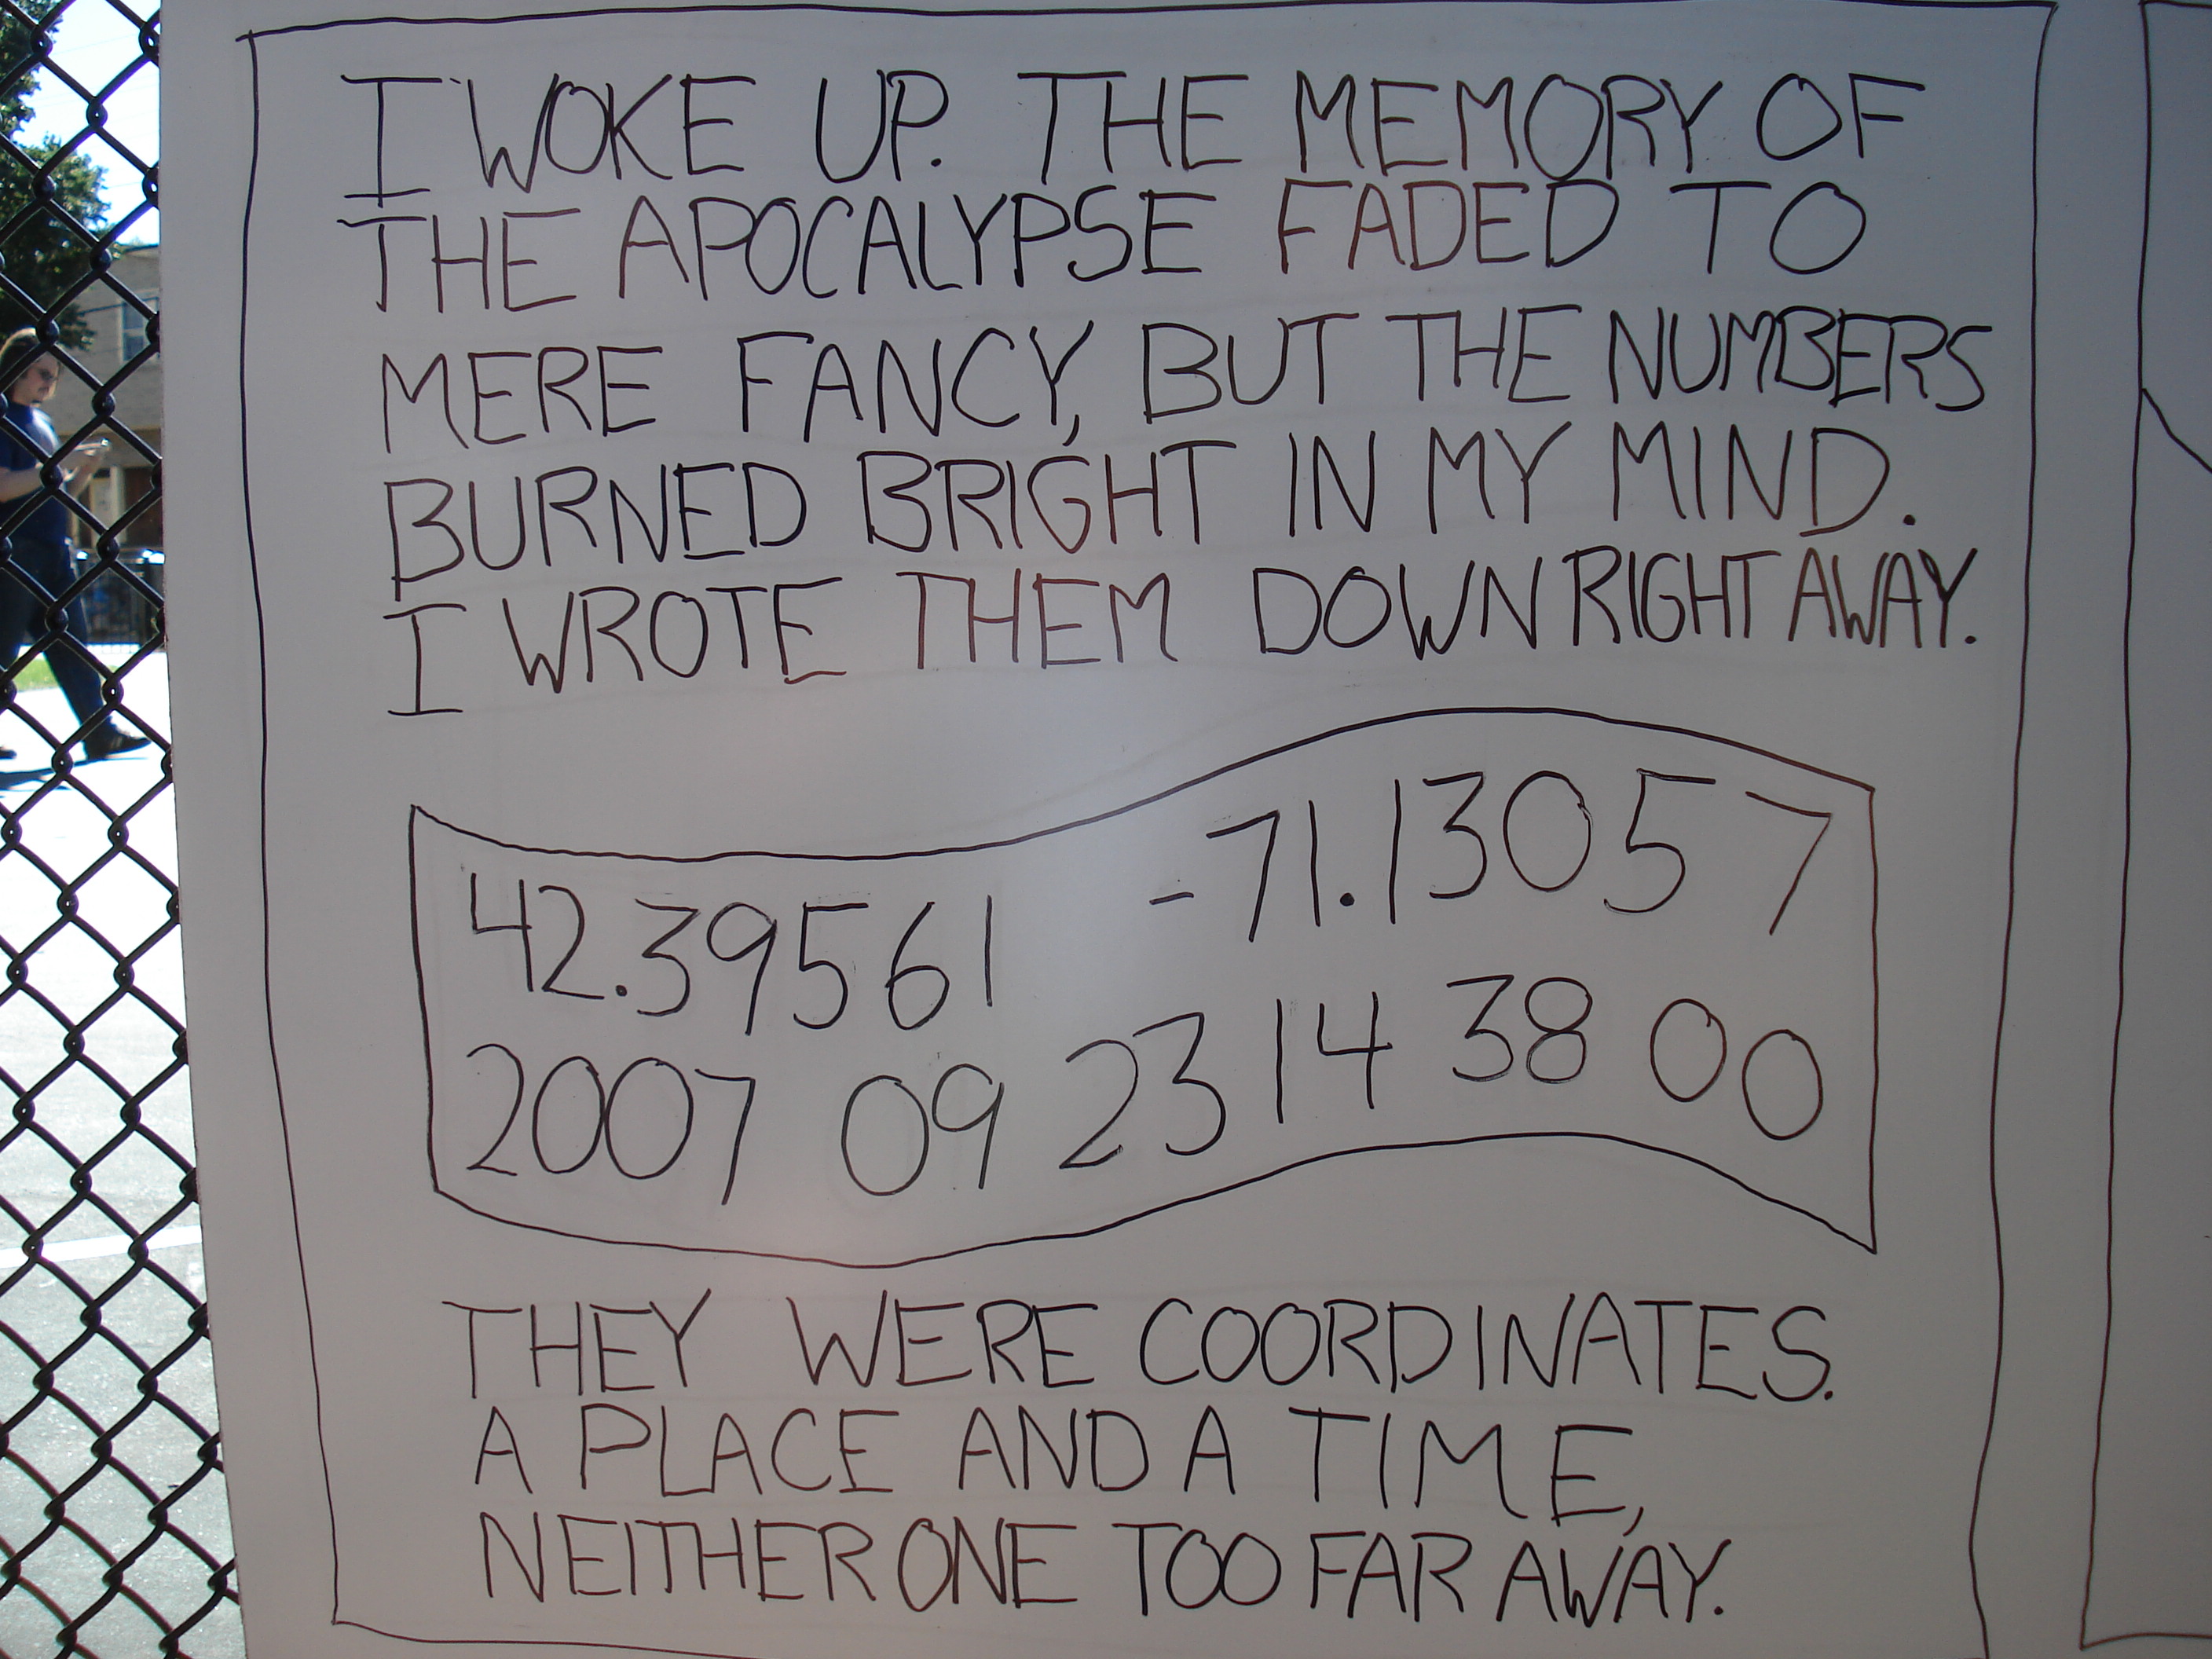 I WOKE UP. THE MEMORY OF
THE APOCALYPSE FADED TO
MERE FANCY, BUT THE NUMBERS
BURNED BRIGHT IN MY MIND.
I WROTE THEM DOWN RIGHT AWAY.
42.39561 -71.13057
2007 09 23 14 38 00
THEY WERE COORDINATES.
A PLACE AND A TIME,
NEITHER ONE TOO FAR AWAY.